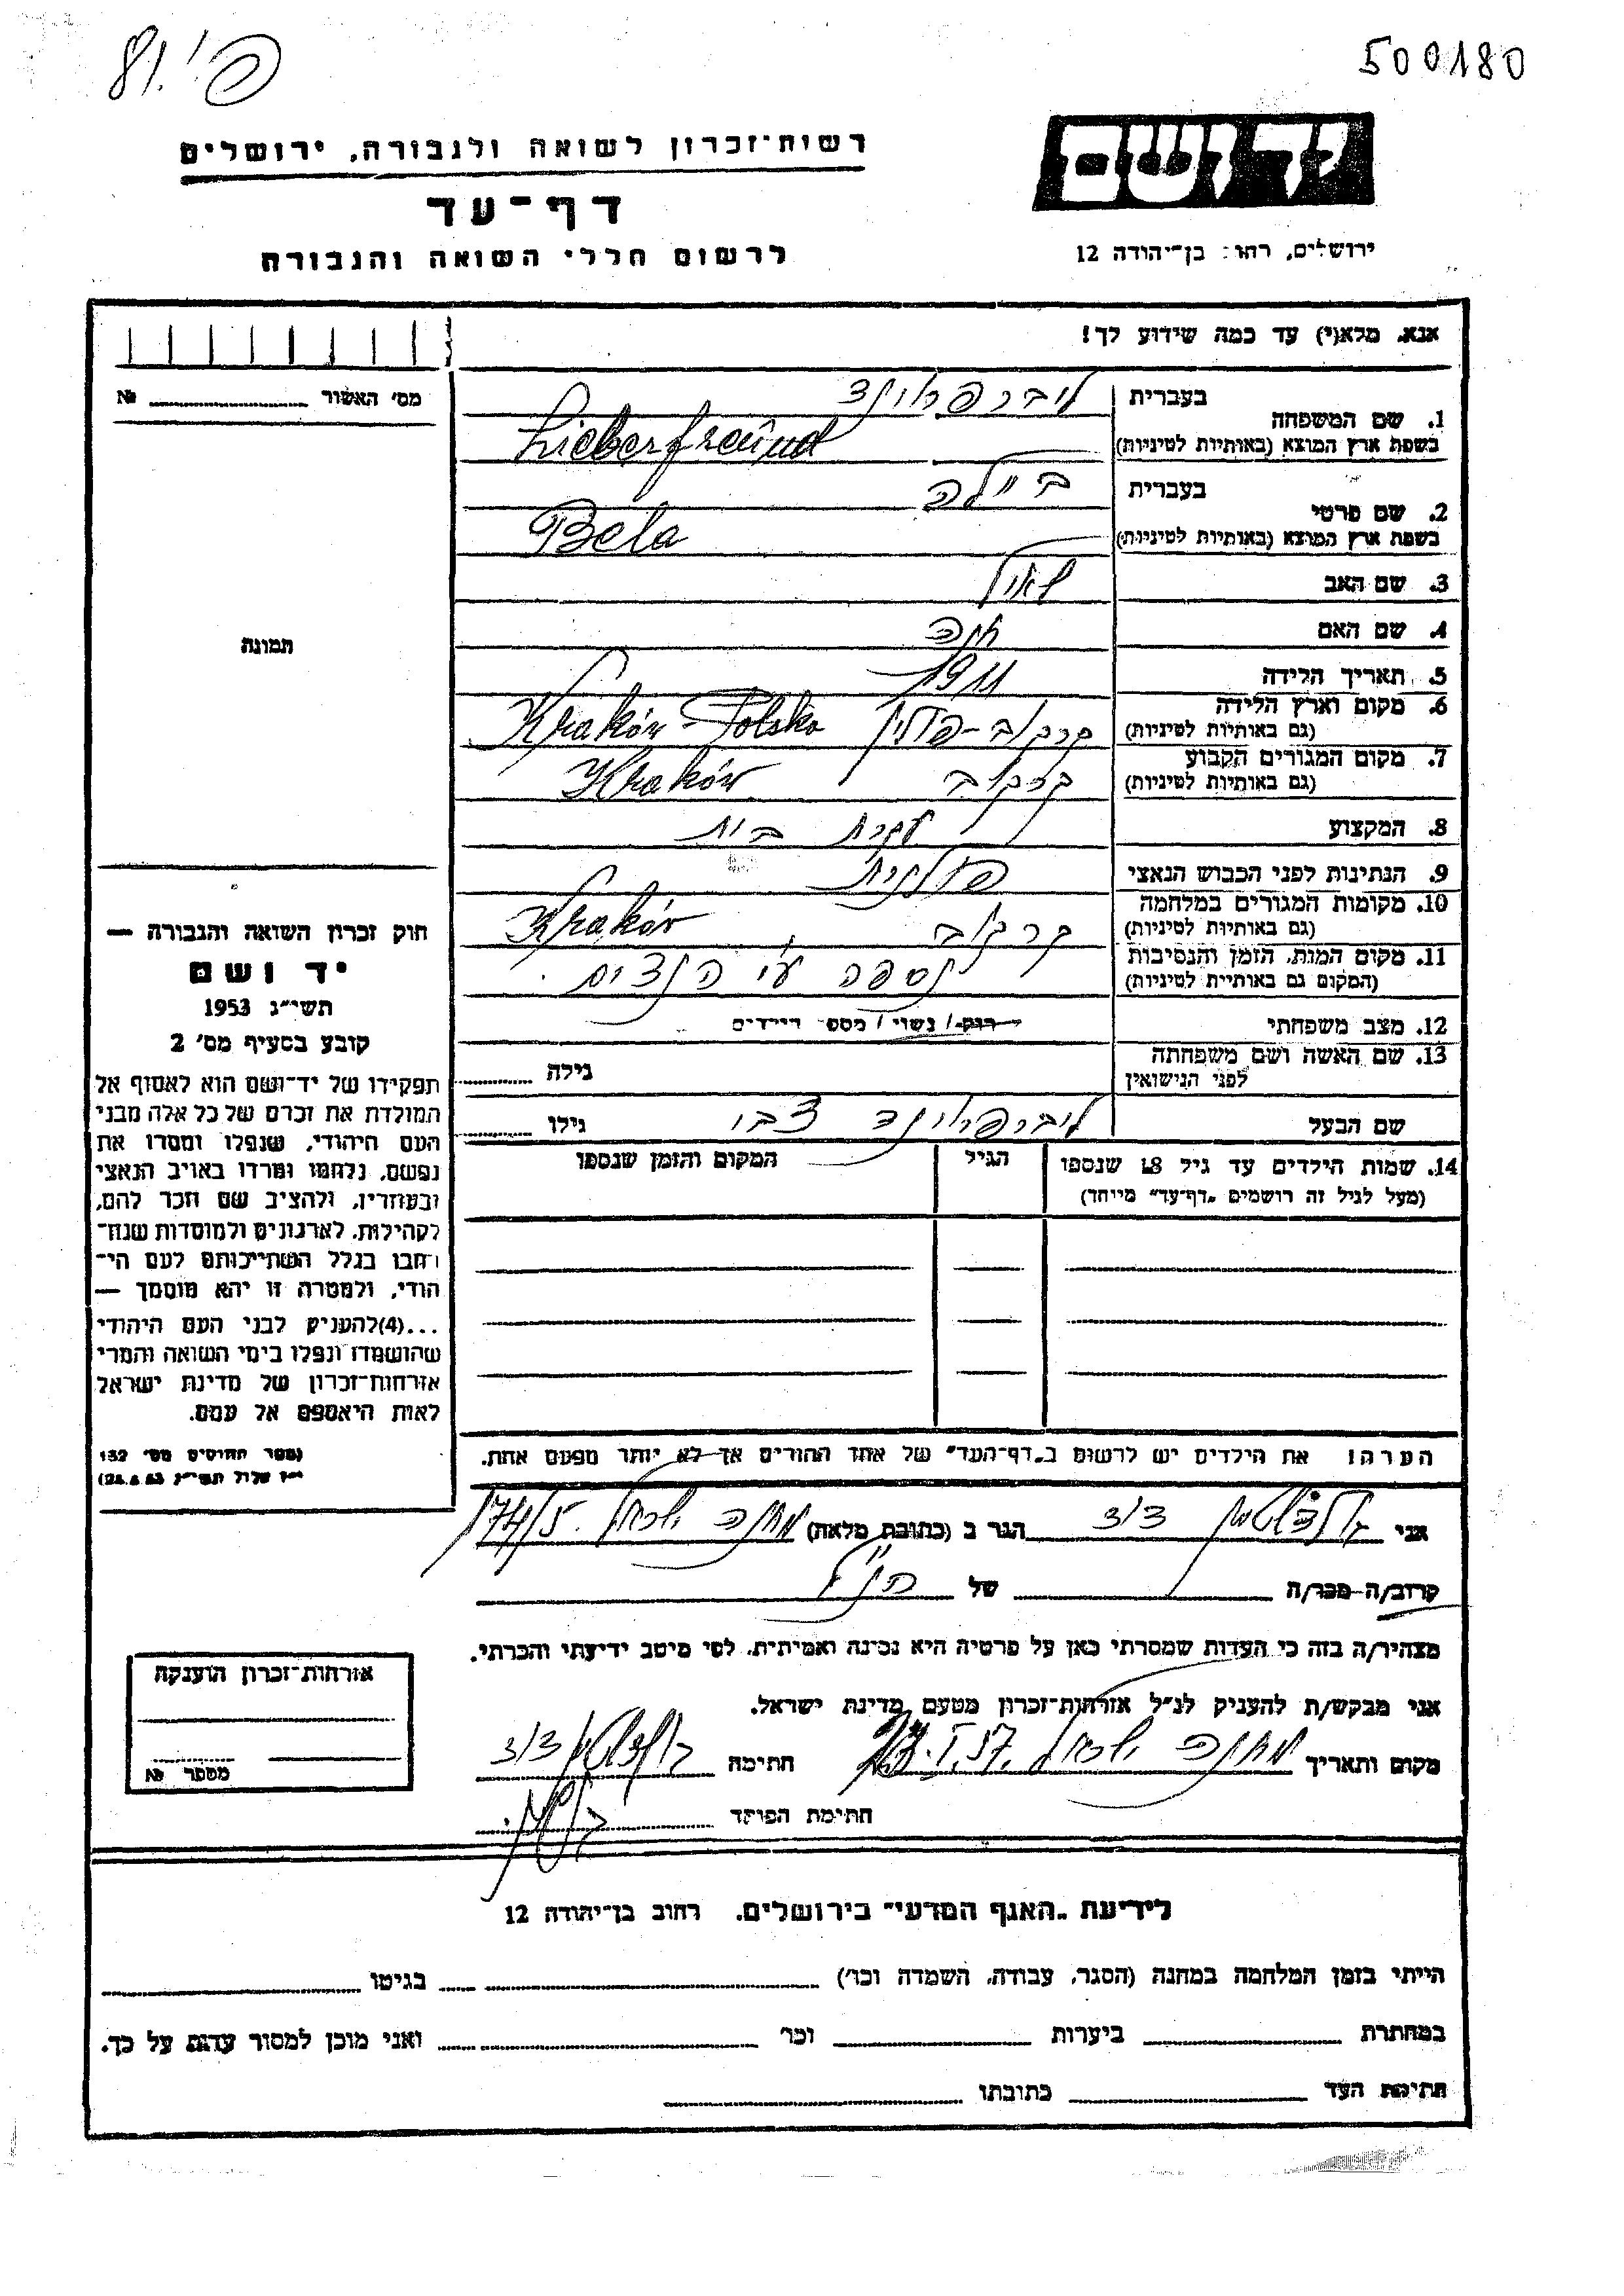 פ'. 81
500180
יד ושם
רשות־זכרון לשואה ולגבורה, ירושלים
דף־עד
לרשום חללי השואה והגבורה
ירושלים, רחוב בן־יהודה 12
אנא, מלא(י) עד כמה שידוע לך!
מס' האשור №
תמונה
1. שם המשפחה
בעברית ליברפרוינד
בשפת ארץ המוצא (באותיות לטיניות) Lieberfreund
2. שם פרטי
בעברית ביילה
בשפת ארץ המוצא (באותיות לטיניות) Bela
3. שם האב שאול
4. שם האם חנה
5. תאריך הלידה 1911
6. מקום וארץ הלידה
(גם באותיות לטיניות) קרקוב - פולין Kraków - Polska
7. מקום המגורים הקבוע
(גם באותיות לטיניות) קרקוב Kraków
8. המקצוע עקרת בית
9. הנתינות לפני הכבוש הנאצי פולנית
10. מקומות המגורים במלחמה
(גם באותיות לטיניות) קרקוב Kraków
11. מקום המות, הזמן והנסיבות
(המקום גם באותיות לטיניות) נספה ע"י הנצים.
12. מצב משפחתי רווק / נשוי / מספר הילדים
13. שם האשה ושם משפחתה
לפני הנישואין גילה
שם הבעל ליברפרוינד צבי גילו
14. שמות הילדים עד גיל 18 שנספו
(מעל לגיל זה רושמים „דף־עד" מייחד)
הגיל
המקום והזמן שנספו
חוק זכרון השואה והגבורה —
יד ושם
תשי"ג 1953
קובע בסעיף מס' 2
תפקידו של יד־ושם הוא לאסוף אל
המולדת את זכרם של כל אלה מבני
העם היהודי, שנפלו ומסרו את
נפשם, נלחמו ומרדו באויב הנאצי
ובעוזריו, ולהציב שם וזכר להם,
לקהילות, לארגונים ולמוסדות שנח־
רבו בגלל השתייכותם לעם הי־
הודי, ולמטרה זו יהא מוסמך —
...(4)להעניק לבני העם היהודי
שהושמדו ונפלו בימי השואה והמרי
אזרחות־זכרון של מדינת ישראל
לאות היאספם אל עמם.
(ספר החוקים מס' 132
י"ז אלול תשי"ג 28.8.53)
הערה: את הילדים יש לרשום ב„דף־העד" של אחד ההורים אך לא יותר מפעם אחת.
אני הגר ב (כתובת מלאה) מחנה ישראל 174/5
קרוב/ה מכר/ה של הנ"ל
מצהיר/ה בזה כי העדות שמסרתי כאן על פרטיה היא נכונה ואמיתית, לפי מיטב ידיעתי והכרתי.
אני מבקש/ת להעניק לנ"ל אזרחות־זכרון מטעם מדינת ישראל.
מקום ותאריך מחנה ישראל I.57. חתימה
חתימת הפוקד
אזרחות־זכרון הוענקה
מספר №
לידיעת „האגף המדעי" בירושלים, רחוב בן־יהודה 12
הייתי בזמן המלחמה במחנה (הסגר, עבודה, השמדה וכו') בגיטו
במחתרת ביערות וכו' ואני מוכן למסור עדות על כך.
חתימת העד כתובתו